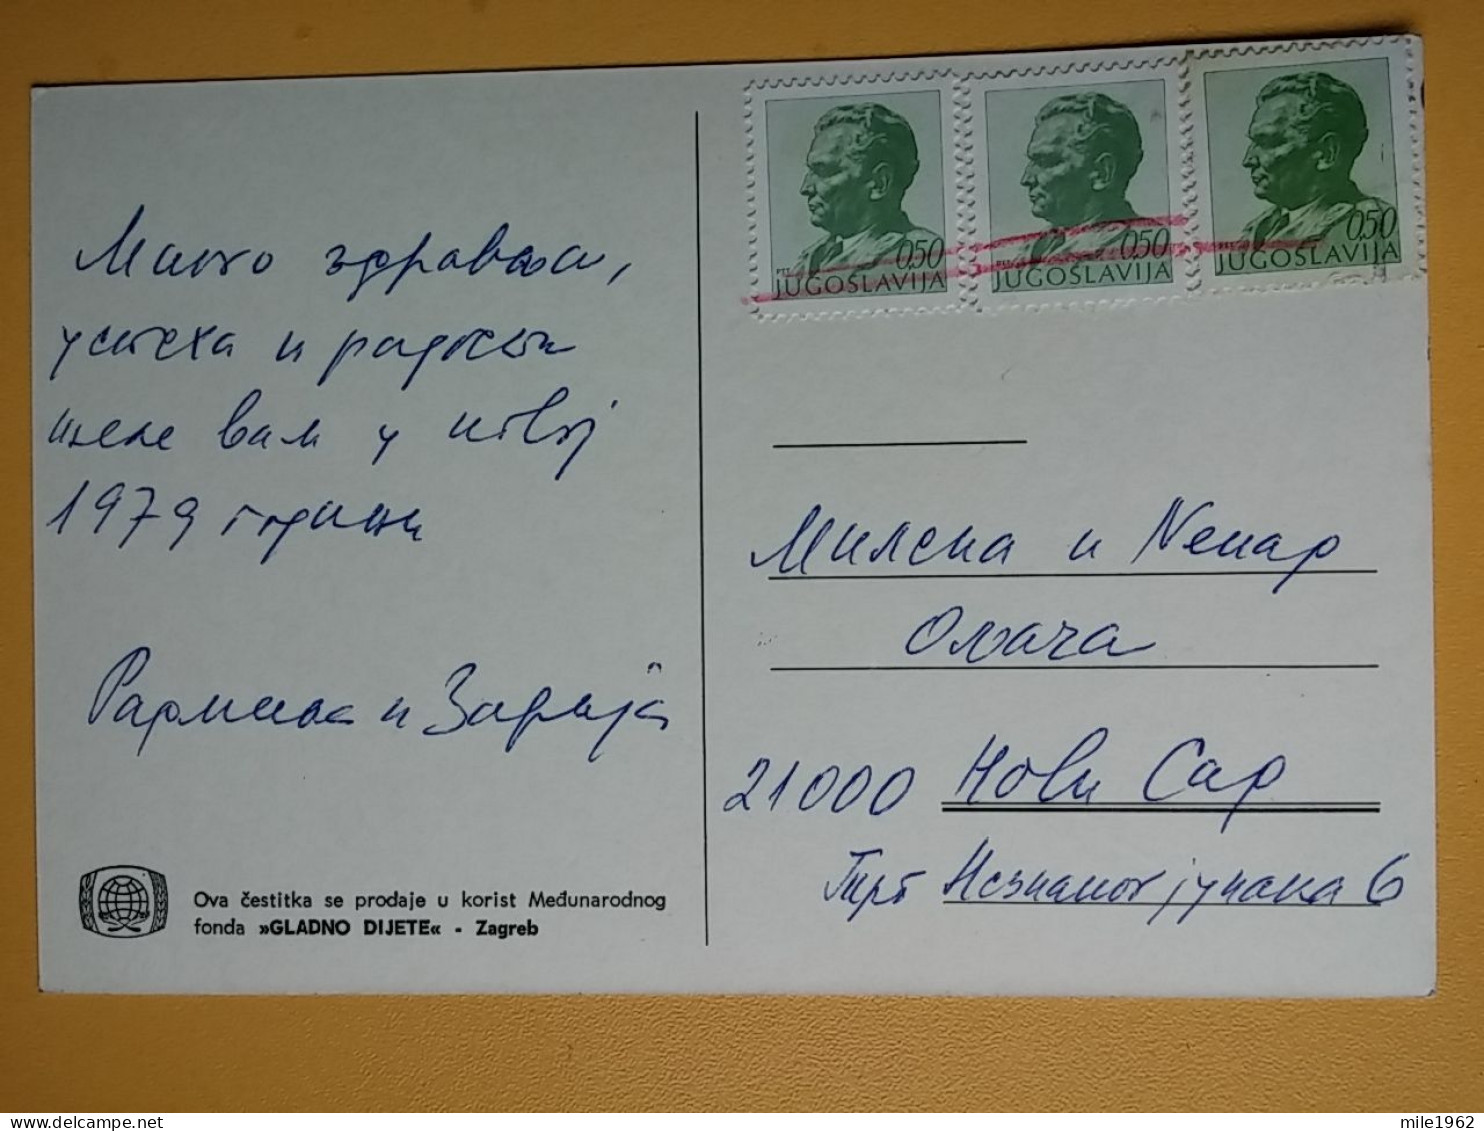 Много здравља,
успеха и радости
желе вам у новој
1979 години
Радмила и Здравија
Ova čestitka se prodaje u korist Međunarodnog
fonda »GLADNO DIJETE« - Zagreb
PTT 0,50
JUGOSLAVIJA
PTT 0,50
JUGOSLAVIJA
PTT 0,50
JUGOSLAVIJA
Милена и Ненад
Олача
21000 Нови Сад
Трг Незнаног јунака 6
delcampe.net
mile1962